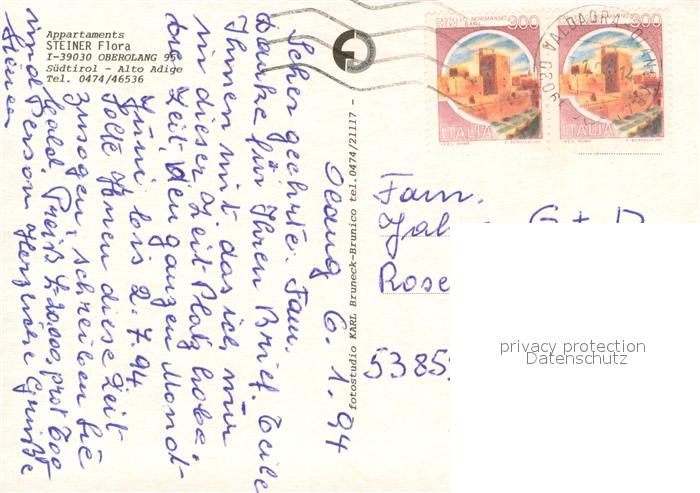 Appartaments
STEINER Flora
I-39030 OBEROLANG 95
Südtirol - Alto Adige
Tel. 0474/46536
CASTELLO NORMANNO
SVEVO BARI
300
ITALIA
I.P.Z.S. ROMA
CASTELLO NORMANNO
300
ITALIA
I.P.Z.S. ROMA
fotostudio KARL Bruneck-Brunico tel.0474/21117 -
Olang 6. 1. 94
Sehr geehrte: Fam.
Danke für Ihren Brief. Teile
Ihnen mit, das ich nur
in dieser Zeit Platz habe,
Zeit, den ganzen Monat
Juni bis 2. 7. 94
Solte Ihnen diese Zeit
zusagen, schreiben Sie
bald. Preiß L. 20.000, pro Tag
und Person Herzliche Grüße
Steiner
Fam.
G + D
Rose
5385
privacy protection
Datenschutz